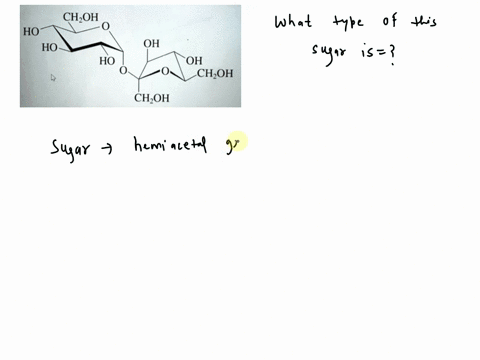 CH₂OH
HO
O
HO
HO
O
OH
O
OH
CH₂OH
CH₂OH
What type of this
sugar is=?
Sugar → hemiacetal